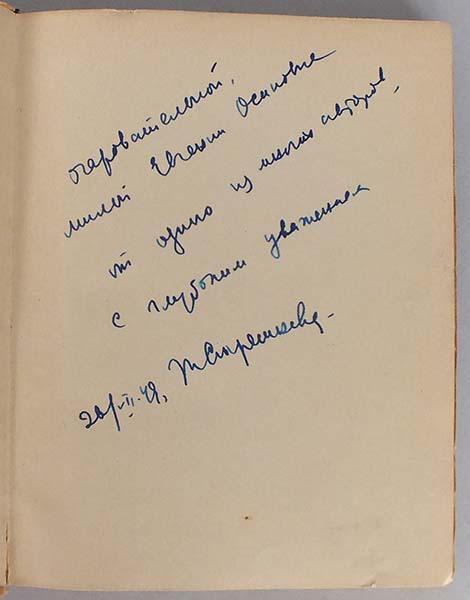 очаровательной,
милой Евгении Осиповне
от одного из многих авторов,
с глубоким уважением
20/VII.49,